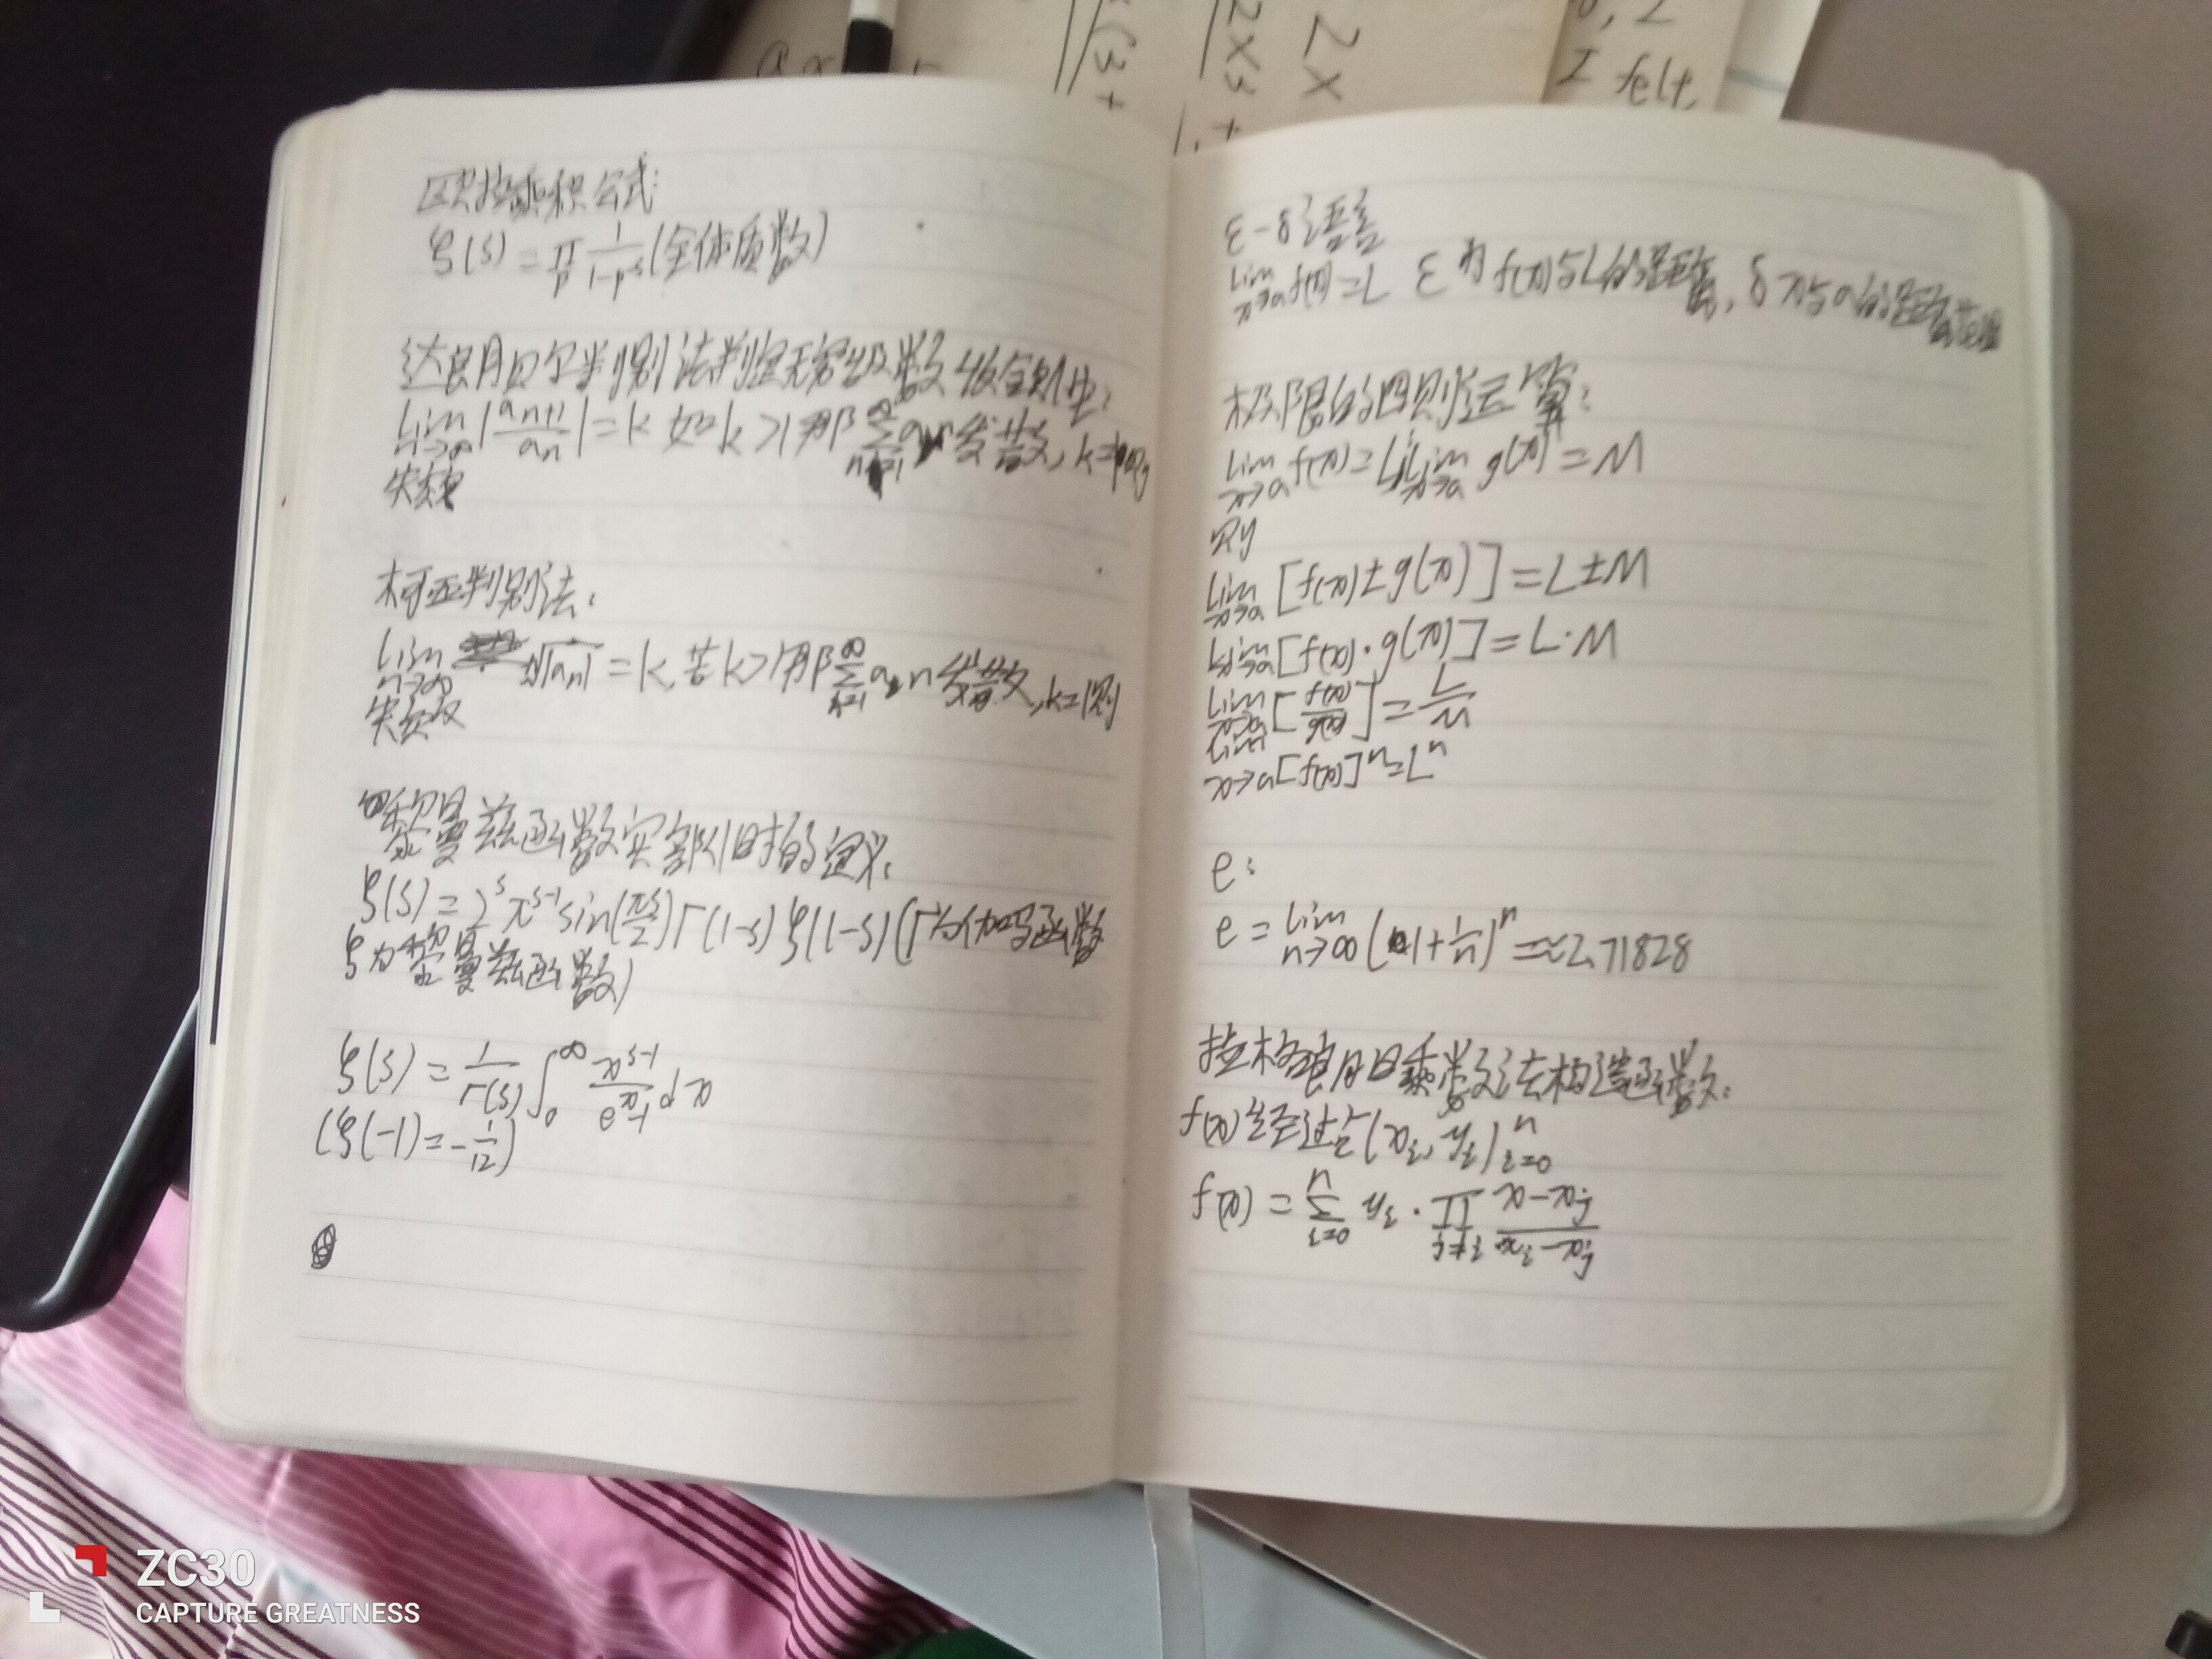 欧拉乘积公式:
ζ(s) = ∏p 1/(1-p^-s) (全体质数)
达朗贝尔判别法判定无穷级数收敛性:
lim n→∞ |an+1/an| = k 如k>1那∑n=1∞ an发散, k=1则
失效
柯西判别法:
lim n→∞ n√|an| = k, 若k>1那∑n=1∞ an 发散, k=1则
失效
黎曼兹函数实部<1时的定义:
ζ(s) = 2^s π^s-1 sin(πs/2) Γ(1-s) ζ(1-s) (Γ为伽马函数
ζ为黎曼兹函数)
ζ(s) = 1/Γ(s) ∫0∞ x^s-1/(e^x-1) dx
(ζ(-1) = -1/12)
ε-δ语言
lim x→a f(x) = L ε为f(x)与L的距离, δ x与a的距离
极限的四则运算:
lim x→a f(x) = L, lim x→a g(x) = M
则
lim x→a [f(x) ± g(x)] = L ± M
lim x→a [f(x)·g(x)] = L·M
lim x→a [f(x)/g(x)] = L/M
lim x→a [f(x)]^n = L^n
e:
e = lim n→∞ (1+1/n)^n ≈ 2.71828
拉格朗日乘数法构造函数:
f(x)经过点(xi, yi) i=0 n
f(x) = ∑i=0n yi · ∏j≠i (x-xj)/(xi-xj)
2X
2X3+
(3+
I felt,
ZC30
CAPTURE GREATNESS